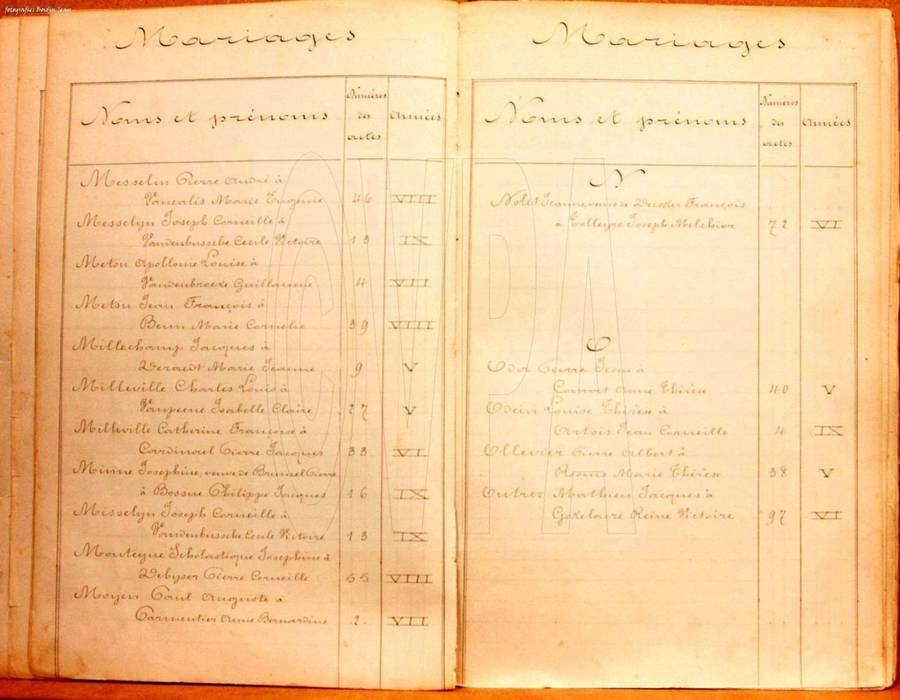 fotografies Bordin Jean
Mariages
Noms et prénoms
Numéros des actes
Années
Messelin Pierre André à
Vancalis Marie Eugénie 46 VIII
Messelyn Joseph Corneille à
Vandenbussche Cecile Victoire 13 IX
Metsu Apollonie Louise à
Vandenbroeke Guillaume 4 VII
Metsu Jean François à
Beun Marie Cornelie 39 VIII
Millechamp Jacques à
Deraedt Marie Jeanne 9 V
Milleville Charles Louis à
Vanpeene Isabelle Claire 27 V
Milleville Catherine Françoise à
Cardinael Pierre Jacques 33 VI
Minne Josephine, veuve de Bruneel Pierre
à Bossue Philippe Jacques 16 IX
Misselyn Joseph Corneille à
Vandenbussche Cecile Victoire 13 IX
Monteyne Scholastique Josephine à
Debyser Pierre Corneille 55 VIII
Moyen Paul Auguste à
Parmentier Anne Bernardine 2 VII
Mariages
Noms et prénoms
Numéros des actes
Années
N
Jeanne veuve de Decoster François
à Tolleyne Joseph Melchior 72 VI
O
Pierre Jean à
Anne Thérèse 40 V
Odein Louise Thérèse à
Artois Jean Corneille 4 IX
Ollevier Pierre Albert à
Rooms Marie Thérèse 38 V
Outrez Mathieu Jacques à
Gokelaere Reine Victoire 97 VI
CVPA